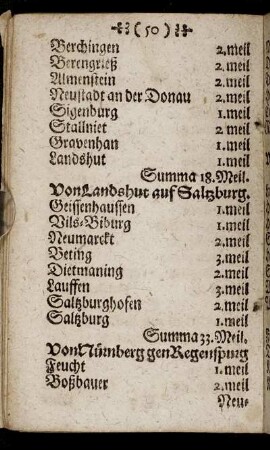 (50)
Berchingen 2.meil
Berengrieß 2.meil
Almenstein 2.meil
Neustadt an der Donau 2.meil
Sigenburg 1.meil
Stallniet 2 meil
Gravenhan 1.meil
Landshut 1.meil
Summa 18.Meil.
Von Landshut auf Saltzburg.
Geissenhaussen 1.meil
Vils-Biburg 1.meil
Neumarckt 2.meil
Veting 3.meil
Dietmaning 2.meil
Lauffen 3.meil
Saltzburghofen 2.meil
Saltzburg 1.meil
Summa 33. Meil.
Von Nürnberg gen Regenspurg
Feucht 1.meil
Boßbauer 2.meil
Neu-